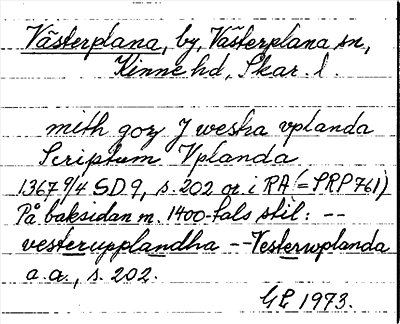 Västerplana, by, Västerplana sn,
Kinne hd, Skar. l.
mith gozJ westra vplanda
Scriptum Vplanda
1367 9/4 SD 9, s. 202 or. i RA (=SRP 761)
På baksidan m. 1400-tals stil: --
vesterupplandha -- Vesterwplanda
a.a., s. 202.
GP. 1973.